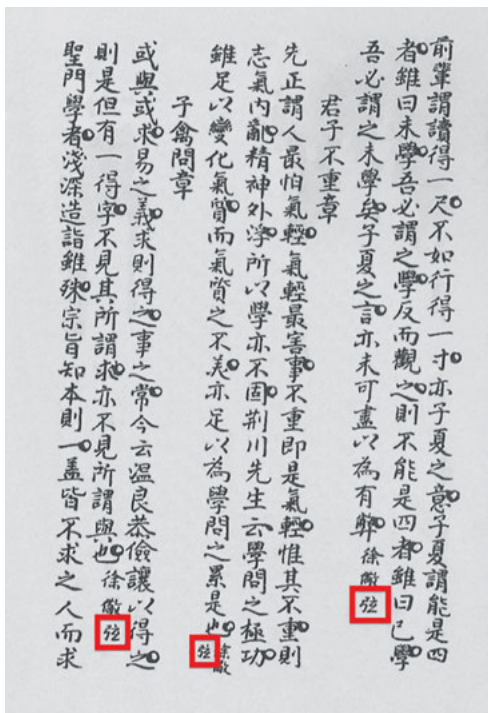 前輩謂讀得一尺不如行得一寸亦子夏之意子夏謂能是四
者雖曰未學吾必謂之學反而觀之則不能是四者雖曰已學
吾必謂之未學矣子夏之言亦未可盡以為有弊徐儆弦
君子不重章
先正謂人最怕氣輕氣輕最害事不重即是氣輕惟其不重則
志氣內亂精神外浮所以學亦不固荆川先生云學問之極功
雖足以變化氣質而氣質之不美亦足以為學問之累是也徐儆弦
子禽問章
或與或求易之義求則得之事之常今云温良恭儉讓以得之
則是但有一得字不見其所謂求亦不見所謂與也徐儆弦
聖門學者淺深造詣雖殊宗旨知本則一盖皆不求之人而求